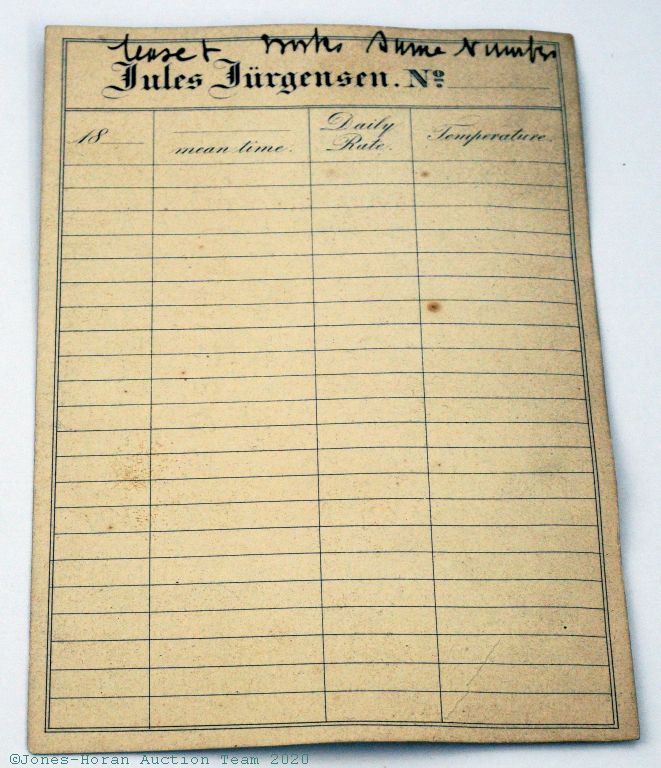 Same Number
Jules Jürgensen. Nº
18
mean time.
Daily
Rate.
Temperature.
©Jones-Horan Auction Team 2020